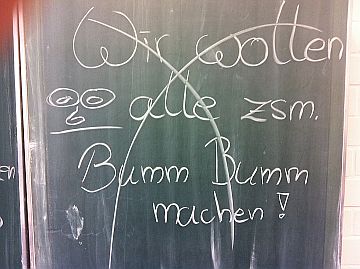 Wir wollen
alle zsm.
Bumm Bumm
machen!